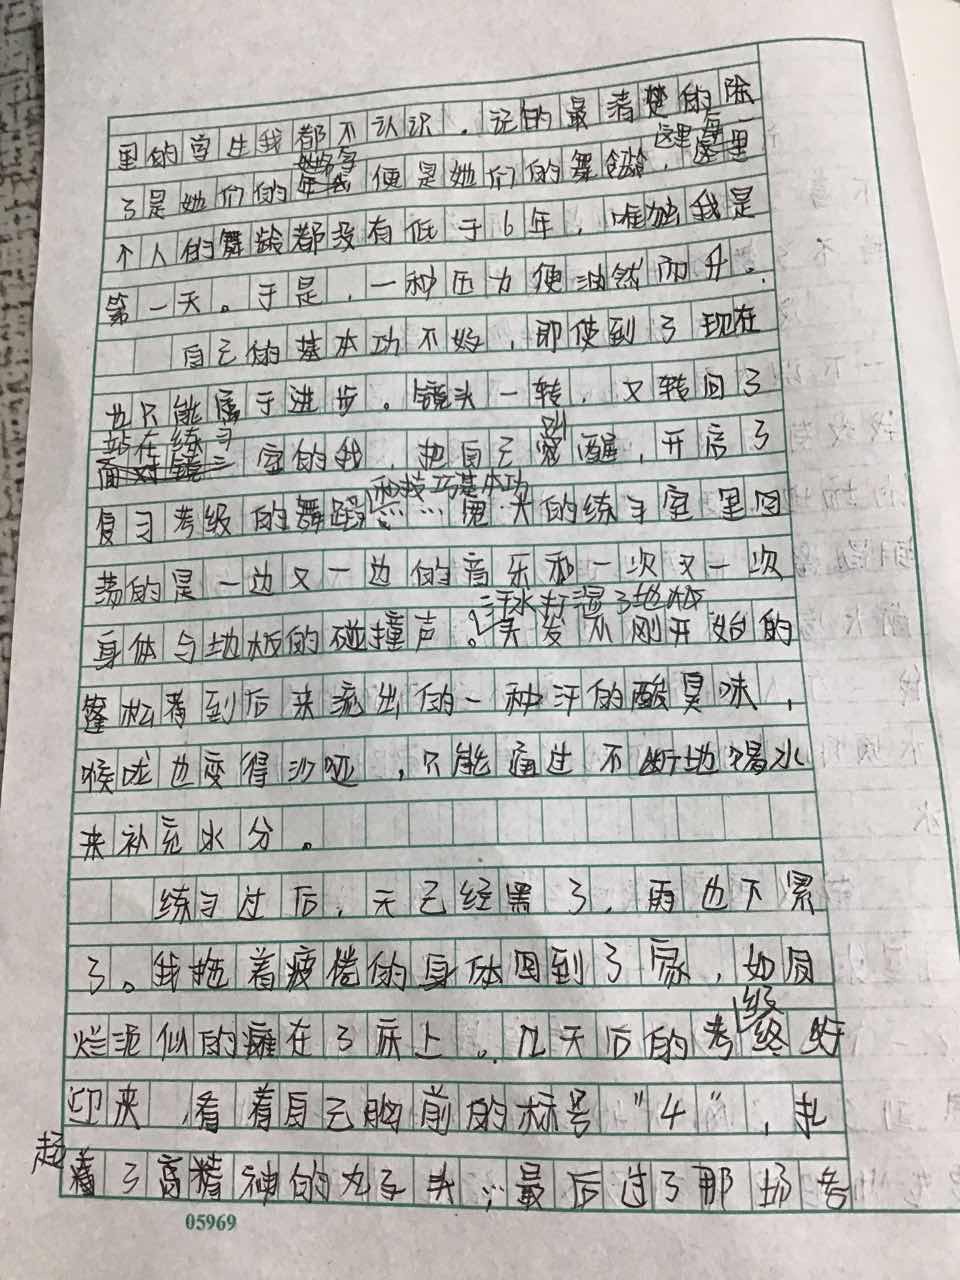 里的学生我都不认识。记的最清楚的除
了是她们的姓名字便是她们的舞龄，这里每一
个人的舞龄都没有低于6年，唯独我是
第一天。于是，一种压力便油然而升。
自己的基本功不好，即使到了现在
也只能属于进步。镜头一转，又转回了
站在练习室的我，把自己叫醒，开启了
复习考级的舞蹈和技巧基本功……偌大的练习室里回
荡的是一边又一边的音乐和一次又一次
身体与地板的碰撞声。汗水打湿了地板头发从刚开始的
篷松着到后来流出的一种汗的酸臭味，
喉咙也变得沙哑，只能通过不断地喝水
来补充水分。
练习过后，天已经黑了，雨也下累
了。我拖着疲倦的身体回到了家，如同
烂泥似的瘫在了床上。几天后的考级终于
迎来，看着自己胸前的标号“4”，扎
着了高精神的丸子头……最后过了那场考
05969